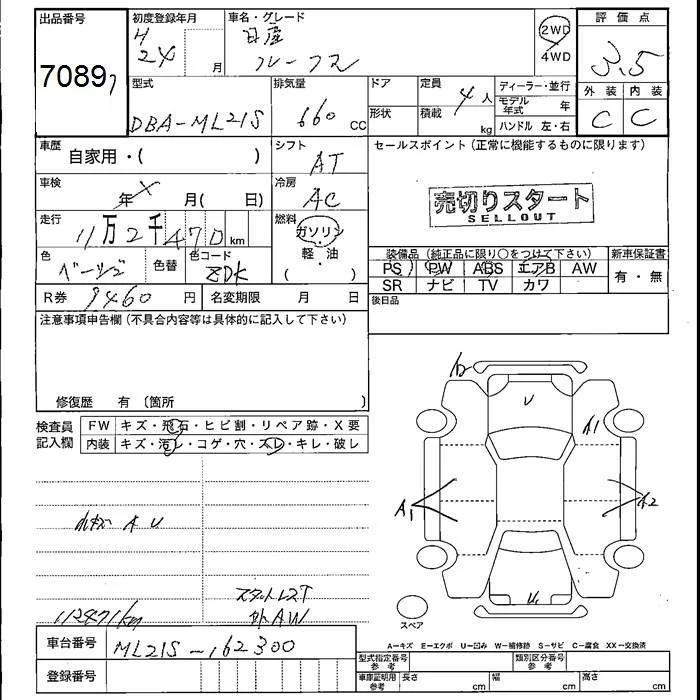 出品番号 初度登録年月 車名・グレード 2WD 評価点
7089 H 24 月 日産 4WD 3.5
ルークス
型式 排気量 ドア 定員 4人 ディーラー・並行 外装 内装
DBA-ML21S 660 CC 形状 積載 kg モデル年式 年 C C
ハンドル 左・右
車歴 自家用・( ) シフト AT セールスポイント(正常に機能するものに限ります)
車検 年 月( 日) 冷房 AC 売切りスタート
SELLOUT
走行 11万2千470km 燃料 ガソリン・軽・油
色 ベージュ 色替 色コード ZDK 装備品(純正品に限り○をつけて下さい) 新車保証書
PS PW ABS エアB AW 有・無
SR ナビ TV カワ
R券 9460円 名変期限 月 日 後日品
注意事項申告欄(不具合内容等は具体的に記入して下さい)
修復歴 有 〔箇所 〕
検査員記入欄 FW キズ・飛石・ヒビ割・リペア跡・X要
内装 キズ・汚レ・コゲ・穴・スレ・キレ・破レ
A U
スタットレスT
外AW
112471km
U A1 A1 A2 U1
スペア
A-キズ E-エクボ U-凹み W-補修跡 S-サビ C-腐食 XX-交換済
車台番号 ML21S-162300
登録番号
型式指定番号 参考 類別区分番号 参考
車庫証明用 参考 長さ cm 幅 cm 高さ cm